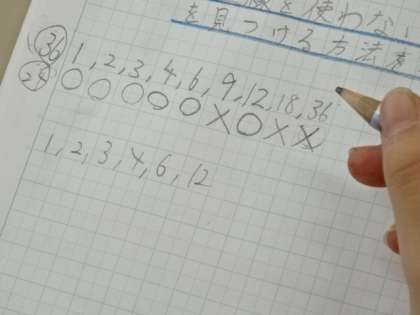 を使わない
を見つける方法を
㊱ 1, 2, 3, 4, 6, 9, 12, 18, 36
㉔ ○ ○ ○ ○ ○ × ○ × ×
1, 2, 3, 4, 6, 12